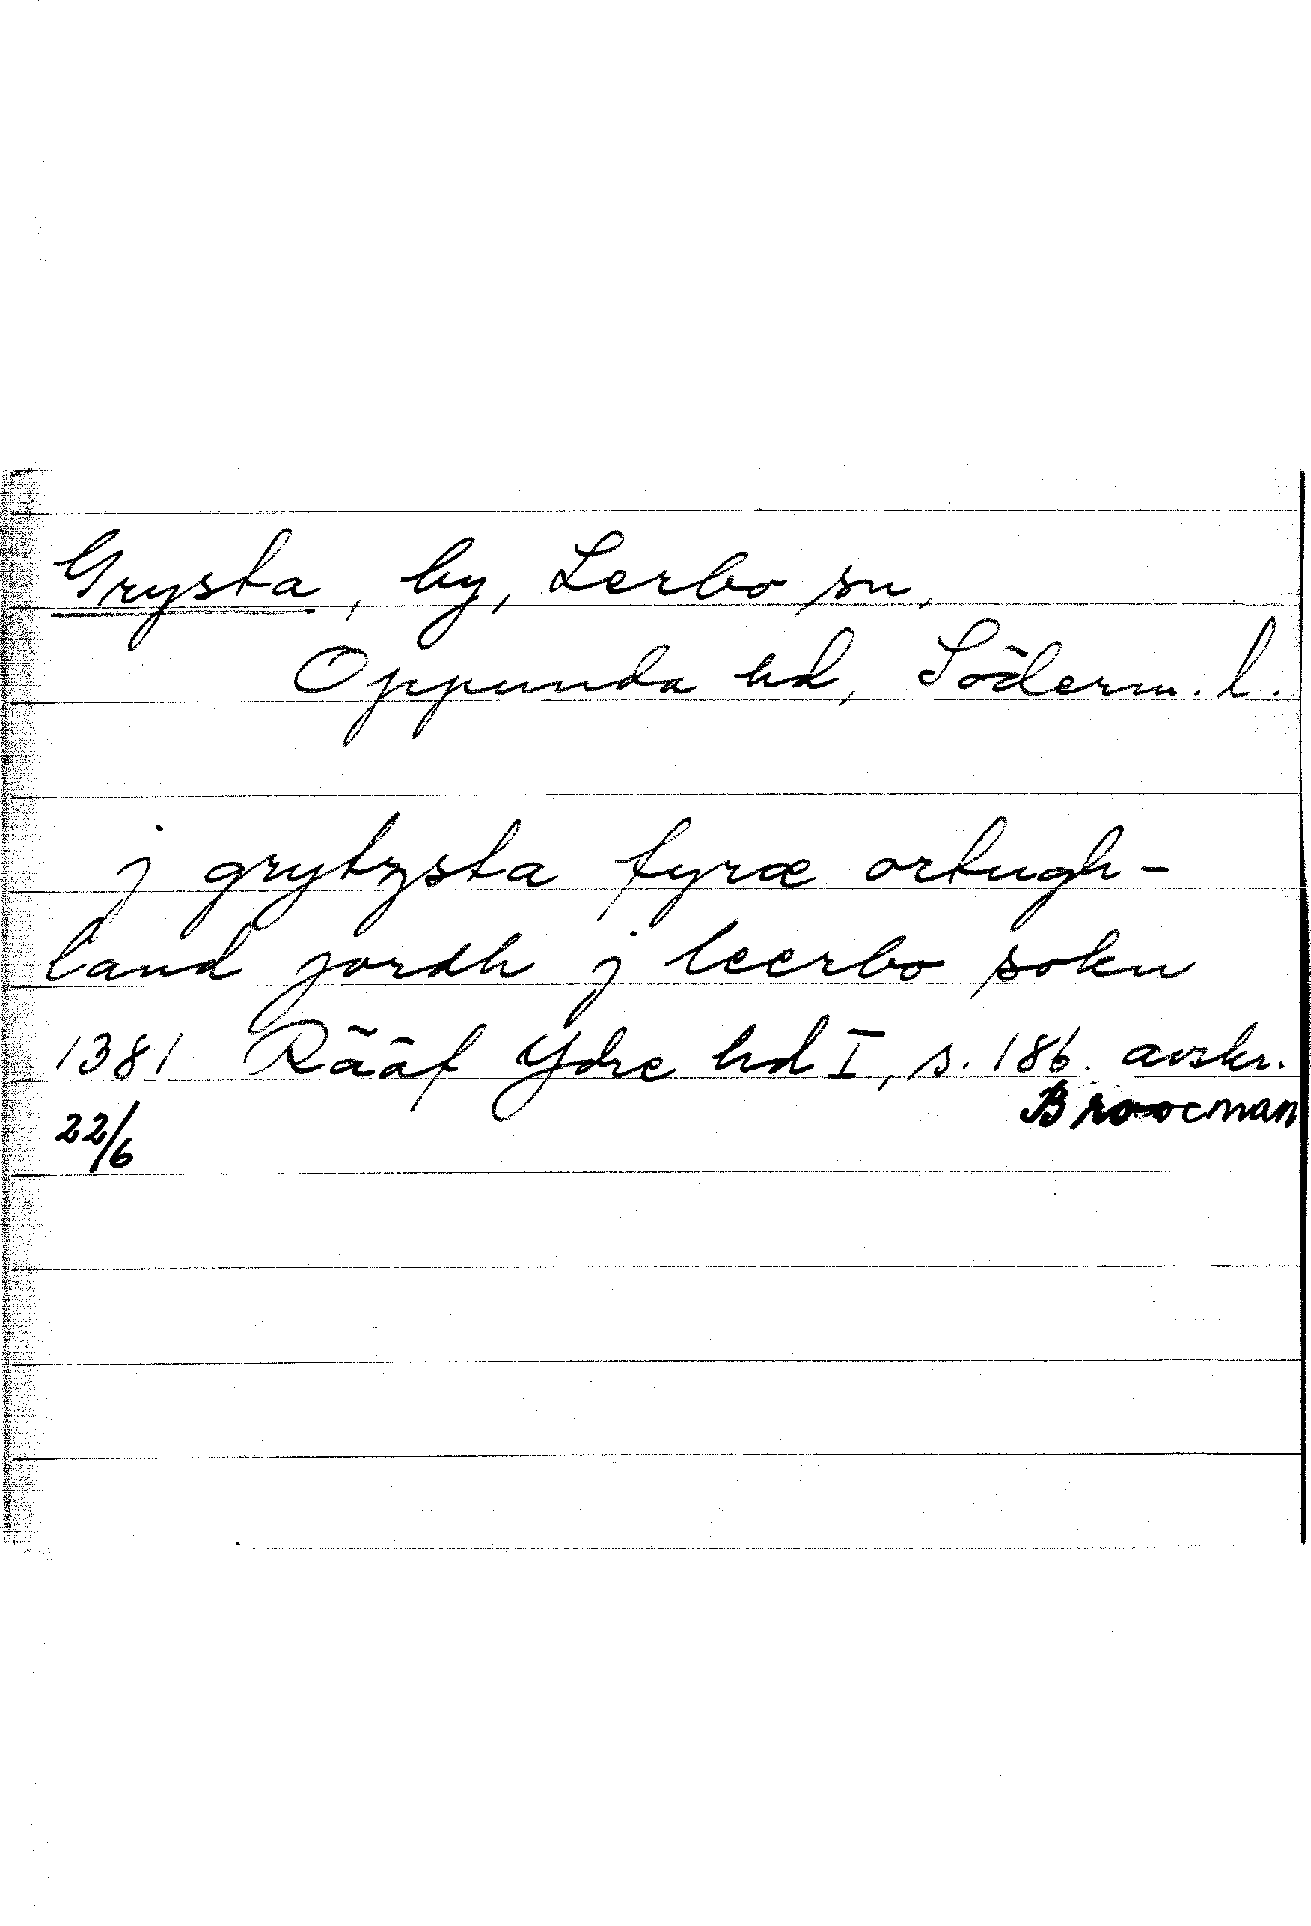 Grysta, by, Lerbo sn,
Oppunda hd, Söderm. l.
j grytzsta fyræ ortugh-
land jordh j leerbo sokn
1381 Rääf Ydre hd I, s. 186. avskr.
22/6 Broocman